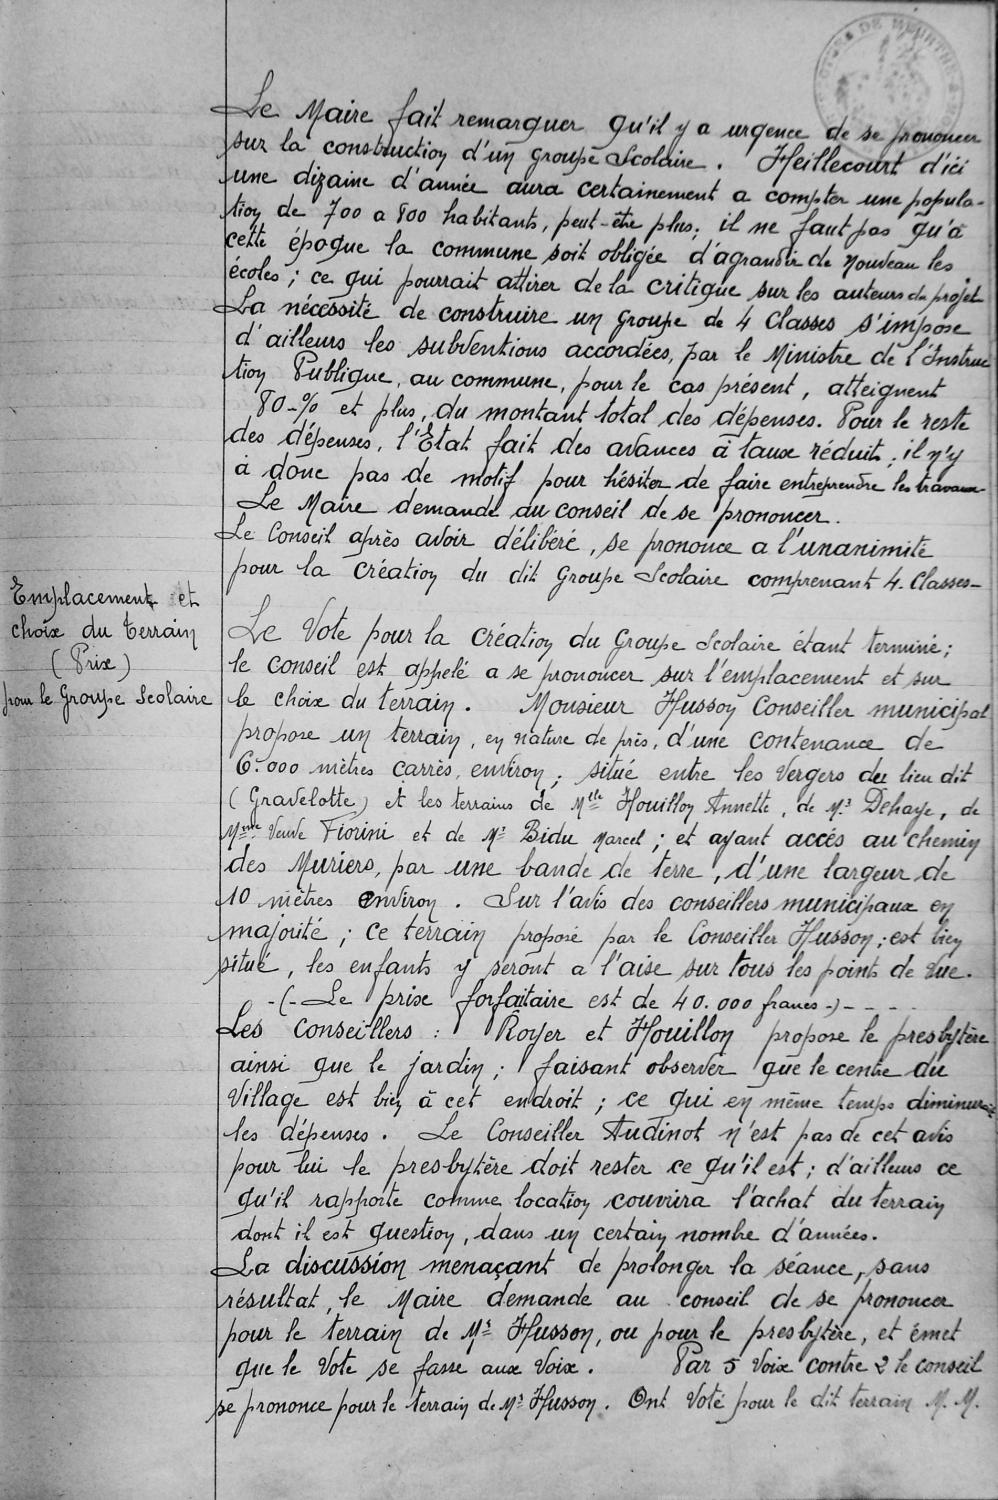 Le Maire fait remarquer qu'il y a urgence de se prononcer
sur la construction d'un groupe Scolaire. Heillecourt d'ici
une dizaine d'année aura certainement a compter une popula-
tion de 700 a 800 habitants, peut-être plus; il ne faut pas qu'à
cette époque la commune soit obligée d'agrandir de nouveau les
écoles; ce qui pourrait attirer de la critique sur les auteurs du projet
La nécéssité de construire un groupe de 4 Classes s'impose
d'ailleurs les subventions accordées, par le Ministre de l'Instruc
tion Publique, au commune, pour le cas présent, atteignent
80-% et plus, du montant total des dépenses. Pour le reste
des dépenses, l'Etat fait des avances à taux réduit; il n'y
a donc pas de motif pour hésiter de faire entreprendre les travaux
Le Maire demande au conseil de se prononcer.
Le Conseil après avoir délibéré, se prononce a l'unanimité
pour la création du dit Groupe Scolaire comprenant 4. Classes-
Emplacement et
choix du terrain
(Prix)
pour le Groupe Scolaire
Le Vote pour la création du Groupe Scolaire étant terminé;
le conseil est appelé a se prononcer sur l'emplacement et sur
le choix du terrain. Monsieur Husson Conseiller municipal
propose un terrain, en nature de près, d'une contenance de
6.000 mètres carrès, environ; situé entre les Vergers du lieu dit
(Gravelotte) et les terrains de Mlle Houillon Annette, de Mr Dehaye, de
Mme Veuve Fiorini et de Mr Bidu Marcel; et ayant accés au chemin
des Muriers, par une bande de terre, d'une largeur de
10 mètres environ. Sur l'avis des conseillers municipaux en
majorité; ce terrain proposé par le Conseiller Husson; est bien
situé, les enfants y seront a l'aise sur tous les points de vue.
-(- Le prix forfaitaire est de 40.000 francs -)- - - -
Les Conseillers: Royer et Houillon propose le presbytère
ainsi que le jardin; faisant observer que le centre du
Village est bien à cet endroit; ce qui en même temps diminuerait
les dépenses. Le Conseiller Audinot n'est pas de cet avis
pour lui le presbytère doit rester ce qu'il est; d'ailleurs ce
qu'il rapporte comme location couvrira l'achat du terrain
dont il est question, dans un certain nombre d'années.
La discussion menaçant de prolonger la séance, sans
résultat, le Maire demande au conseil de se prononcer
pour le terrain de Mr Husson, ou pour le presbytère, et émet
que le Vote se fasse aux Voix. Par 5 Voix contre 2 le conseil
se prononce pour le terrain de Mr Husson. Ont Voté pour le dit terrain M. M.